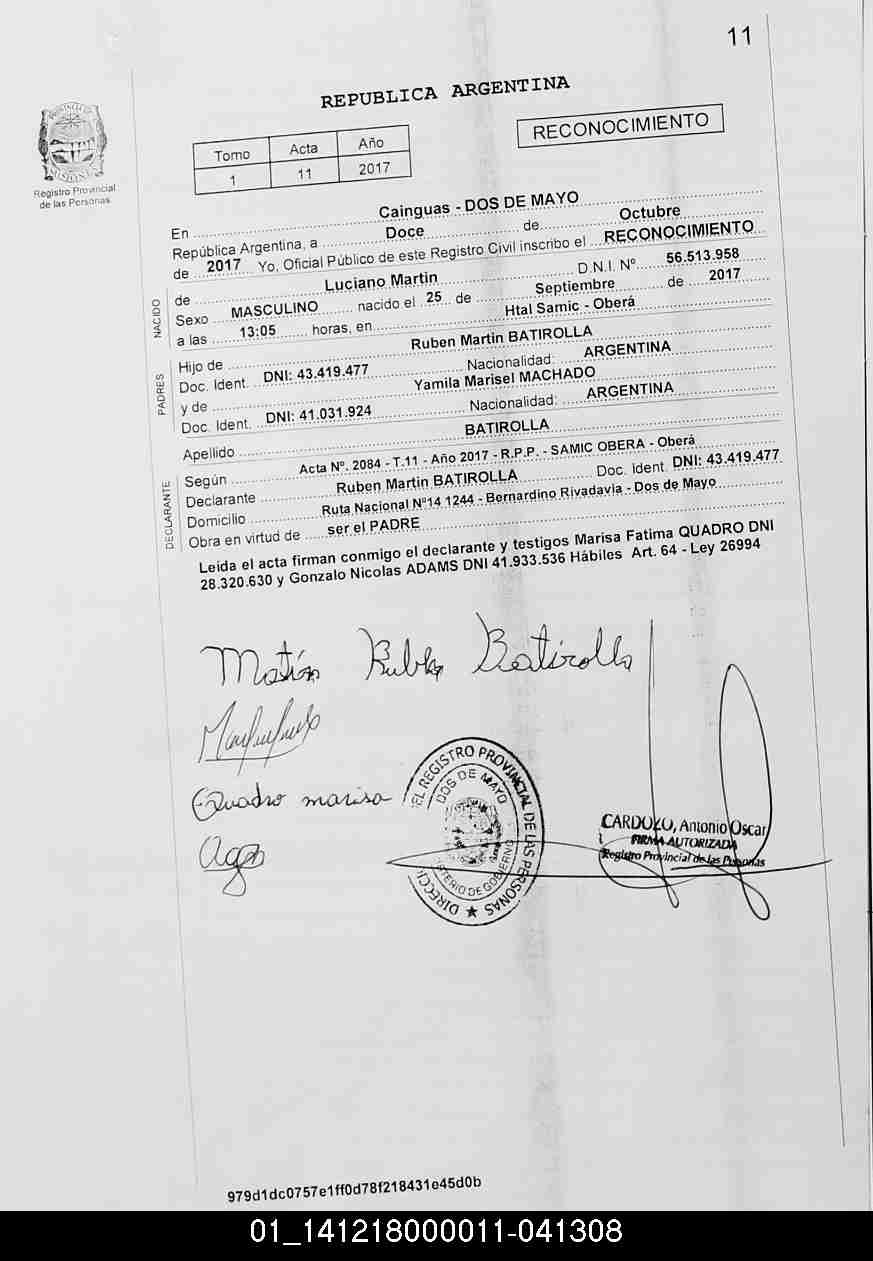 11
REPUBLICA ARGENTINA
RECONOCIMIENTO
PROVINCIA DE MISIONES
Registro Provincial
de las Personas
Tomo Acta Año
1 11 2017
En Cainguas - DOS DE MAYO
República Argentina, a Doce de Octubre
de 2017 Yo, Oficial Público de este Registro Civil inscribo el RECONOCIMIENTO
NACIDO
de Luciano Martin D.N.I. Nº 56.513.958
Sexo MASCULINO nacido el 25 de Septiembre de 2017
a las 13:05 horas, en Htal Samic - Oberá
PADRES
Hijo de Ruben Martin BATIROLLA
Doc. Ident. DNI: 43.419.477 Nacionalidad: ARGENTINA
y de Yamila Marisel MACHADO
Doc. Ident. DNI: 41.031.924 Nacionalidad: ARGENTINA
Apellido BATIROLLA
DECLARANTE
Según Acta Nº. 2084 - T.11 - Año 2017 - R.P.P. - SAMIC OBERA - Oberá
Declarante Ruben Martin BATIROLLA Doc. Ident. DNI: 43.419.477
Domicilio Ruta Nacional Nº14 1244 - Bernardino Rivadavia - Dos de Mayo
Obra en virtud de ser el PADRE
Leida el acta firman conmigo el declarante y testigos Marisa Fatima QUADRO DNI
28.320.630 y Gonzalo Nicolas ADAMS DNI 41.933.536 Hábiles Art. 64 - Ley 26994
Batirolla
Quadro marisa
DEL REGISTRO PROVINCIAL DE LAS PERSONAS
DOS DE MAYO
DE GOBIERNO
CARDOZO, Antonio Oscar
FIRMA AUTORIZADA
Registro Provincial de las Personas
979d1dc0757e1ff0d78f218431e45d0b
01_141218000011-041308